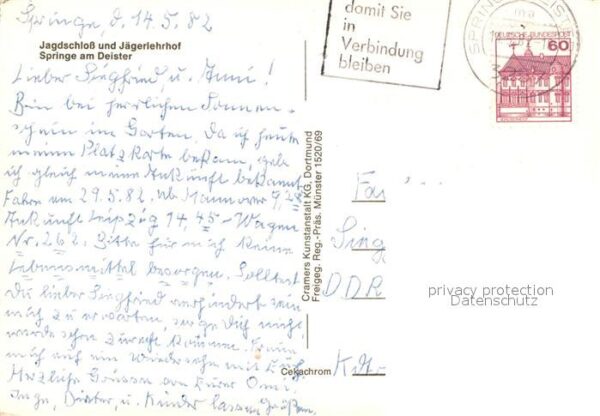 Springe, d. 14.5.82
Jagdschloß und Jägerlehrhof
Springe am Deister
Lieber Siegfried, u. Anni!
Bin bei herrlichen Sonnen-
schein im Garten. Da ich heute
meine Platzkarte bekam, geb
ich gleich meine Ankunft bekannt
Fahre am 29.5.82. ab Hannover 9,28
Ankunft Leipzig 14,45 - Wagen
Nr. 262. Bitte für mich keine
Lebensmittel besorgen. Solltest
Du lieber Siegfried verhindert sein
mich zu erwarten, sorge Dich nicht
werde schon zurecht kommen. Freue
mich auf ein Wiedersehn mit Euch.
Herzliche Grüsse von Eurer Omi.
Inge, Dieter, u. Kinder lassen Grüßen.
Cramers Kunstanstalt KG, Dortmund
Freigeg. Reg.-Präs. Münster 1520/69
Cekachrom
damit Sie
in
Verbindung
bleiben
SPRINGE
DEUTSCHE BUNDESPOST
60
Fa
Sing
DDR
privacy protection
Datenschutz